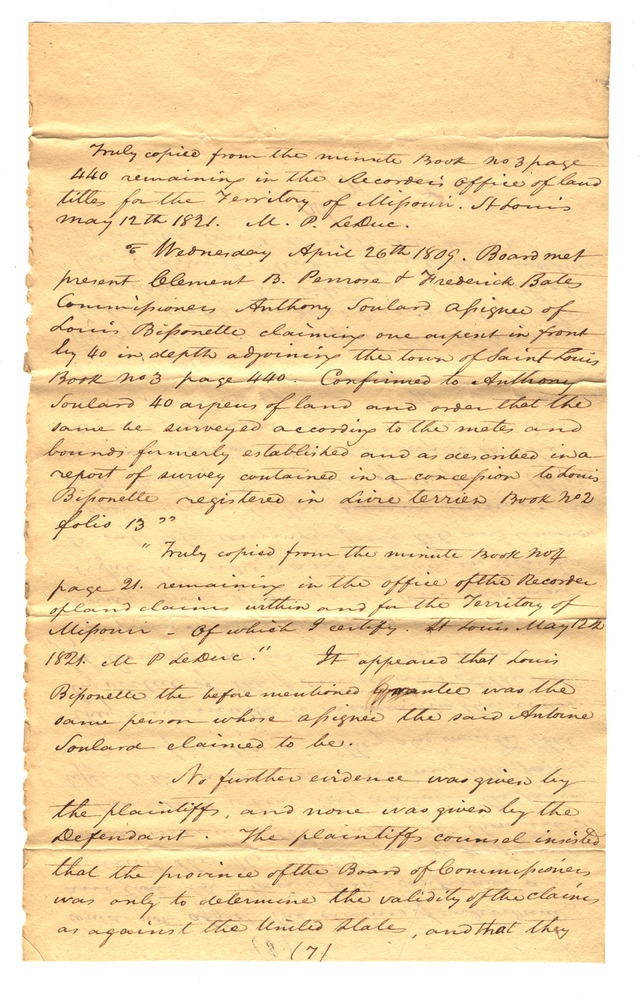 Truly copied from the minute Book no 3 page
440 remaining in the Recorder's office of land
titles for the Territory of Missouri. St Louis
May 12th 1821. M. P. LeDuc.
Wednesday April 26th 1809. Board met
present Clement B. Penrose & Frederick Bates
Commissioners Anthony Soulard assignee of
Louis Bissonette claiming one arpent in front
by 40 in depth adjoining the town of Saint Louis
Book no 3 page 440. Confirmed to Anthony
Soulard 40 arpens of land and order that the
same be surveyed according to the metes and
bounds formerly established and as described in a
report of survey contained in a concession to Louis
Bissonette registered in Livre terrien Book No 2
folio 13"
"Truly copied from the minute Book No 4
page 21. remaining in the office of the Recorder
of land claims within and for the Territory of
Missouri - Of which I certify. St Louis May 12th
1821. M P LeDuc." It appeared that Louis
Bissonette the before mentioned Grantee was the
same person whose assignee the said Antoine
Soulard claimed to be.
No further evidence was given by
the plaintiffs, and none was given by the
Defendant. The plaintiffs counsel insisted
that the province of the Board of Commissioners
was only to determine the validity of the claims
as against the United States, and that they
(7)